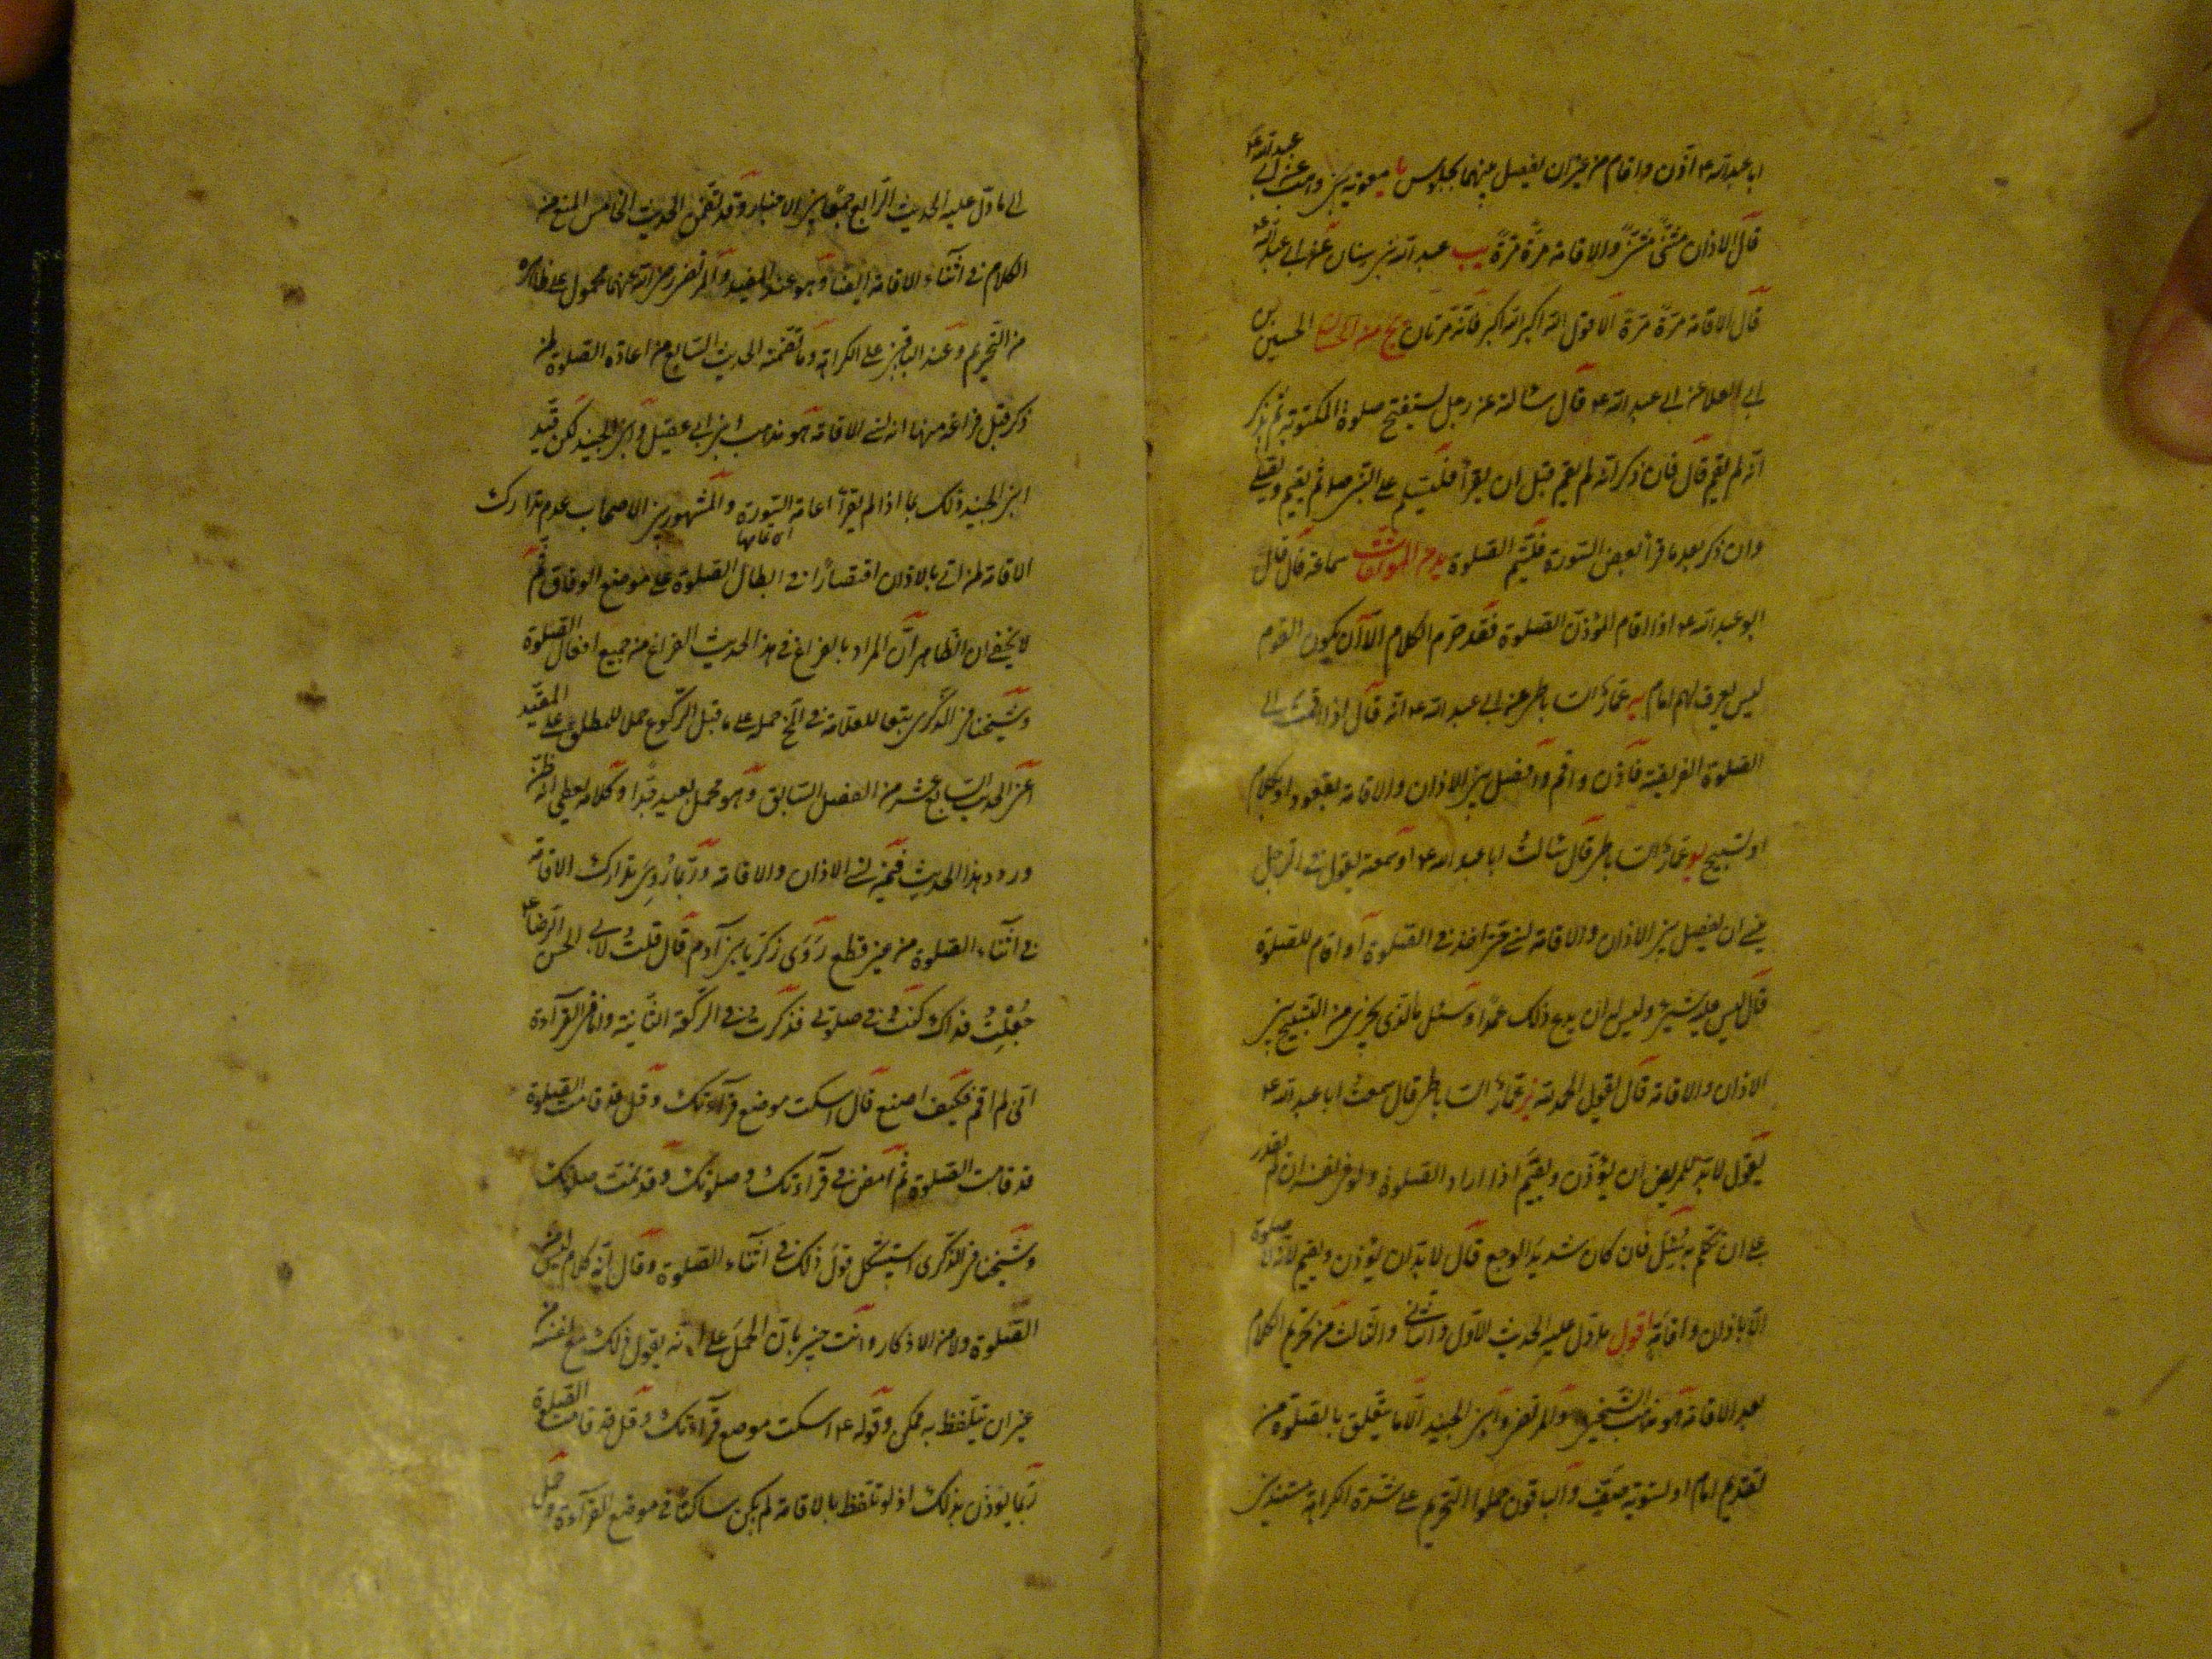 ابا عبد الله ع اذن واقام من غير ان يفصل بينهما بجلوس يا معوية بن وهب عن ابي عبد الله ع
قال الاذان مثنى مثنى والاقامة مرة مرة يب عبد الله بن سنان عن ابي عبد الله ع
قال الاقامة مرة مرة الا قول الله اكبر الله اكبر فانه مرتان يج من الحسان الحسين بن
ابي العلا عن ابي عبد الله ع قال سالته عن رجل يستفتح صلوة المكتوبة ثم يذكر
انه لم يقم قال فان ذكر انه لم يقم قبل ان يقرأ فليسلم على النبي ص ثم يقيم ويصلي
وان ذكر بعد ما قرأ بعض السورة فليتم الصلوة يد من الموثقات سماعة قال قال
ابو عبد الله ع اذا اقام المؤذن الصلوة فقد حرم الكلام الا ان يكون القوم
ليس يعرف لهم امام يه عمار الساباطي عن ابي عبد الله ع انه قال اذا قمت الى
الصلوة الفريضة فاذن واقم وافصل بين الاذان والاقامة بقعود او بكلام
او تسبيح يو عمار الساباطي قال سالت ابا عبد الله ع او سمعته يقول في الرجل
نسي ان يفصل بين الاذان والاقامة بشيء حتى اخذ في الصلوة او اقام للصلوة
قال ليس عليه شيء وليس له ان يدع ذلك عمدا وسئل ما الذي يجزي من التسبيح بين
الاذان والاقامة قال يقول الحمد لله يز عمار الساباطي قال سمعت ابا عبد الله ع
يقول لا بد للمريض ان يؤذن ويقيم اذا اراد الصلوة ولو في نفسه ان لم يقدر
على ان يتكلم به سئل فان كان شديد الوجع قال لا بد ان يؤذن ويقيم لانه لا صلوة
الا باذان واقامة اقول ما دل عليه الحديث الاول والثاني والثالث من تحريم الكلام
بعد الاقامة هو مذهب الشيخين والمرتضى وابن الجنيد الا ما يتعلق بالصلوة من
تقديم امام او تسوية صف والباقون حملوا التحريم على شدة الكراهة مستندين
الى ما دل عليه الحديث الرابع جمعا بين الاخبار وقد تضمن الحديث الخامس المنع من
الكلام في اثناء الاقامة ايضا وهو عند المفيد والمرتضى رضي الله عنهما محمول على ظاهره
من التحريم وعند الباقين على الكراهة وما تضمنه الحديث السابع من اعادة الصلوة لمن
ذكر قبل فراغه منها انه نسي الاقامة هو مذهب ابن ابي عقيل وابن الجنيد لكن قيد
ابن الجنيد ذلك بما اذا لم يقرأ عامة السورة والمشهور بين الاصحاب عدم تدارك
الاقامة لمن اتى بالاذان اقتصارا في ابطال الصلوة على موضع الوفاق ثم
لا يخفى ان الظاهر ان المراد بالفراغ في هذا الحديث الفراغ من جميع افعال الصلوة
وشيخنا في الذكرى تبعا للعلامة في المخ حمله على ما قبل الركوع حملا للمطلق على المقيد
اعني الحديث السابع عشر من الفصل السابق وهو محمل بعيد جدا وكلامه يعطي انه ظن
ورود هذا الحديث فيمن نسي الاذان والاقامة وربما روي تدارك الاقامة
في اثناء الصلوة من غير قطع روى زكريا بن آدم قال قلت لابي الحسن الرضا ع
جعلت فداك كنت في صلوتي فذكرت في الركعة الثانية وانا في القرآءة
اني لم اقم فكيف اصنع قال اسكت موضع قرآءتك وقل قد قامت الصلوة
قد قامت الصلوة ثم امض في قرآءتك وصلوتك وقد تمت صلوتك
وشيخنا في الذكرى استشكل قول ذلك في اثناء الصلوة وقال انه كلام ليس من
الصلوة ولا من الاذكار وانت خبير بان الحمل على انه يقول ذلك مع نفسه من
غير ان يتلفظ به ممكن وقوله ع اسكت موضع قرآءتك وقل قد قامت الصلوة
ربما يؤذن بذلك اذ لو تلفظ بالاقامة لم يكن ساكتا في موضع القرآءة وحمل